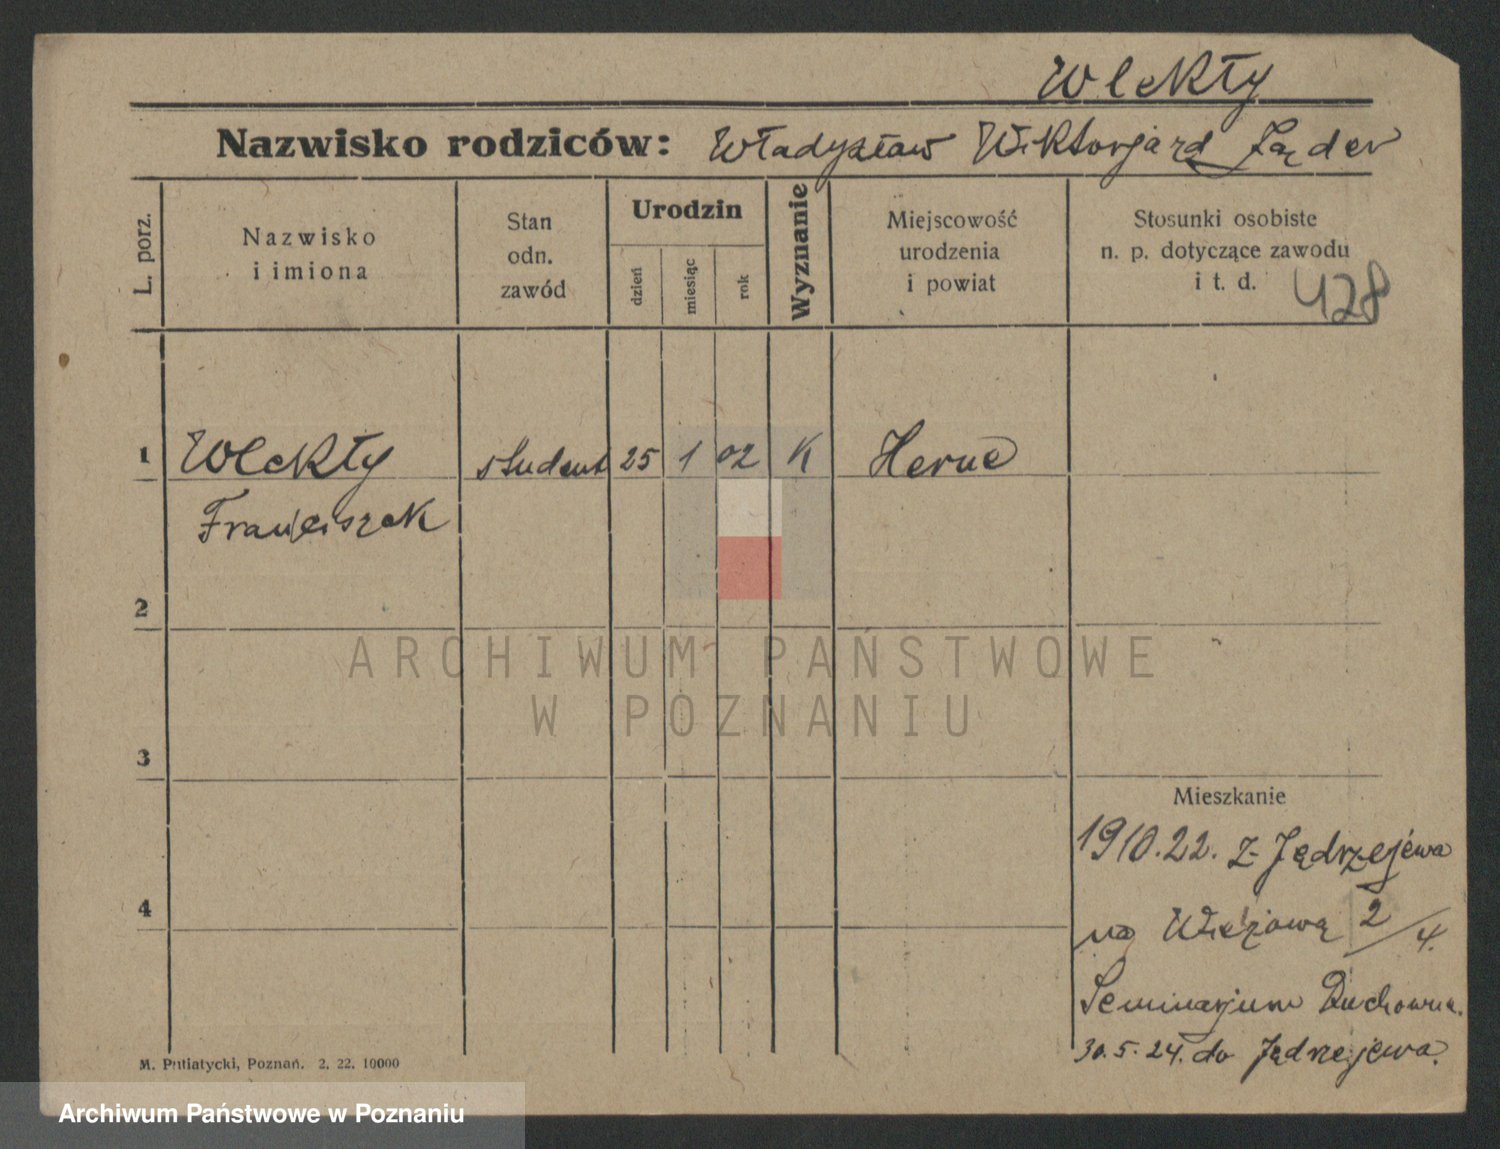 Wlekły
Nazwisko rodziców: Władysław Wiktorja zd Ząder
L. porz.
Nazwisko
i imiona
Stan
odn.
zawód
Urodzin
dzień
miesiąc
rok
Wyznanie
Miejscowość
urodzenia
i powiat
Stosunki osobiste
n. p. dotyczące zawodu
i t. d.
428
1 Wlekły student 25 1 02 K Herne
Franciszek
2
ARCHIWUM PAŃSTWOWE
W POZNANIU
3
Mieszkanie
19/10.22. z Jędrzejewa
4
na Wieżową 2/4.
Seminarjum Duchowne.
30.5.24. do Jędrzejewa.
M. Putiatycki, Poznań. 2. 22. 10000
Archiwum Państwowe w Poznaniu